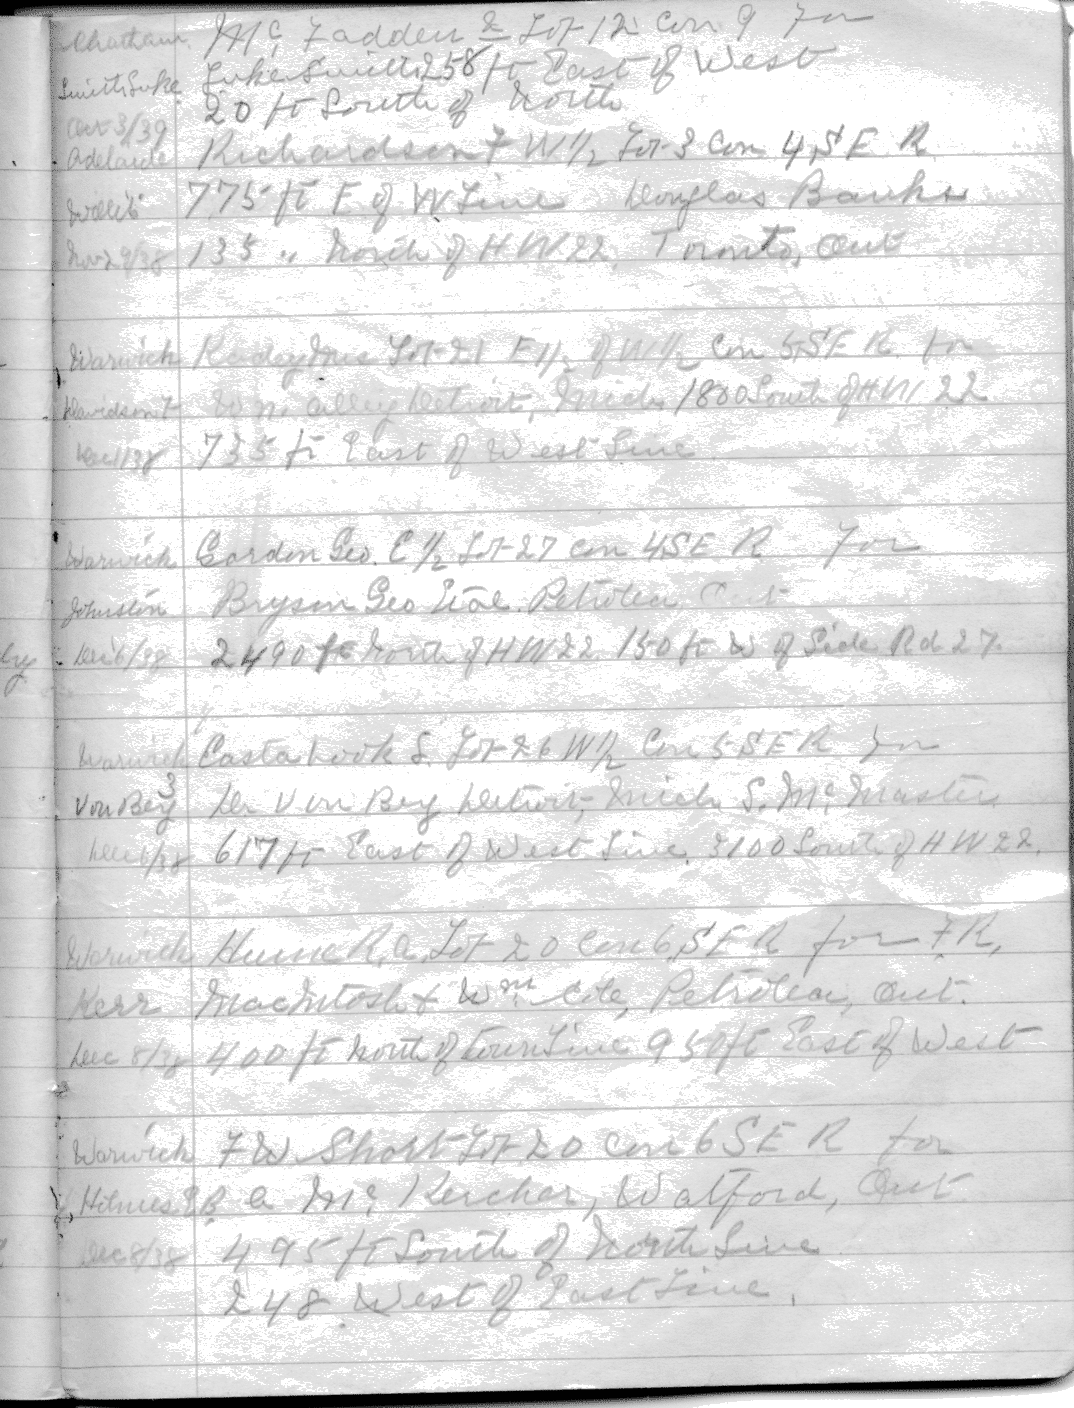 Chatham Mc Fadden & Lot 12 Con 9 For
Smith Luke Luke Smith 258 ft East of West
20 ft South of North
Oct 3/39
Adelaide Richardson F W 1/2 Lot 3 Con 4 S E R
775 ft E of W Line Douglas Banks
Nov 29/38 135 " North of H W 22. Toronto, Ont
Warwick Lot 21 E 1/2 of W 1/2 Con 5 S E R for
Davidson Wm Alley Detroit, Mich. 1800 South of H W 22
Dec 1/38 735 ft East of West Line
Warwick Gordon Geo. E 1/2 Lot 27 Con 4 S E R For
Johnston Bryson Geo Petrolea Ont
Dec 6/38 2490 ft North of H W 22 150 ft W of Side Rd 27.
Warwick S. Lot 26 W 1/2 Con 5 S E R for
Von Bey 3 Dr Von Bey Detroit, Mich. S. Mc Master
Dec 6/38 617 ft East of West Line. 3100 South of H W 22.
Warwick Hume R. A. Lot 20 Con 6 S E R for F R,
Kerr MacIntosh & Wm Cole, Petrolea, Ont.
Dec 8/38 400 ft North of Town Line 950 ft East of West
Warwick F W Short Lot 20 Con 6 S E R for
A Mc Kercher, Watford, Ont
Dec 8/38 495 ft South of North Line
248 West of East Line.